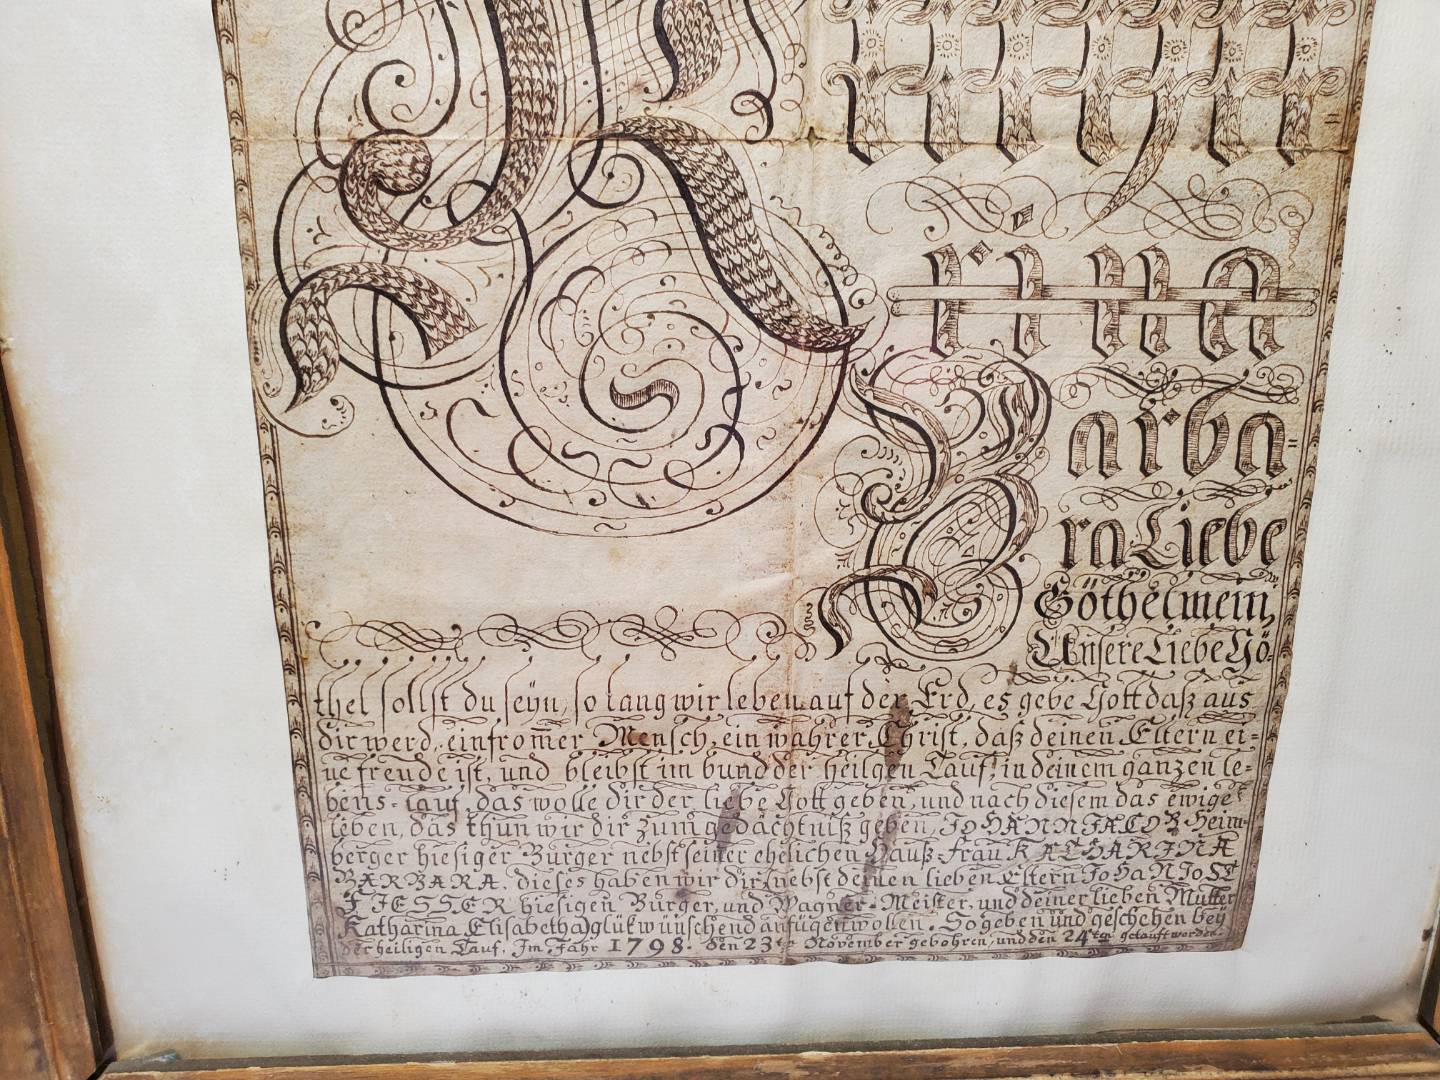 rina
Barba=
ra Liebe
Göthel mein,
Unsere Liebe Gö=
thel sollst du seÿn, so lang wir leben auf der Erd, es gebe Gott daß aus
dir werd, ein from̅er Mensch, ein wahrer Christ, daß deinen Eltern ei=
ne freude ist, und bleibst im bund der heilgen Tauf, in deinem ganzen le=
bens=lauf, das wolle dir der liebe Gott geben, und nach diesem das ewige
leben, das thun wir dir zum gedächtniß geben, JOHANN JACOB Heim=
berger hiesiger Burger nebst seiner ehelichen Hauß=frau KATHARINA
BARBARA. dieses haben wir dir nebst deinen lieben Eltern JOHAN JOST
hiesigen Burger, und Wagner=Meister, und deiner lieben Mutter
Katharina Elisabetha glükwünschend anfügen wollen. So geben und geschehen beÿ
der heiligen Tauf. Im Jahr 1798. den 23te November gebohren, und den 24ten getauft worden.